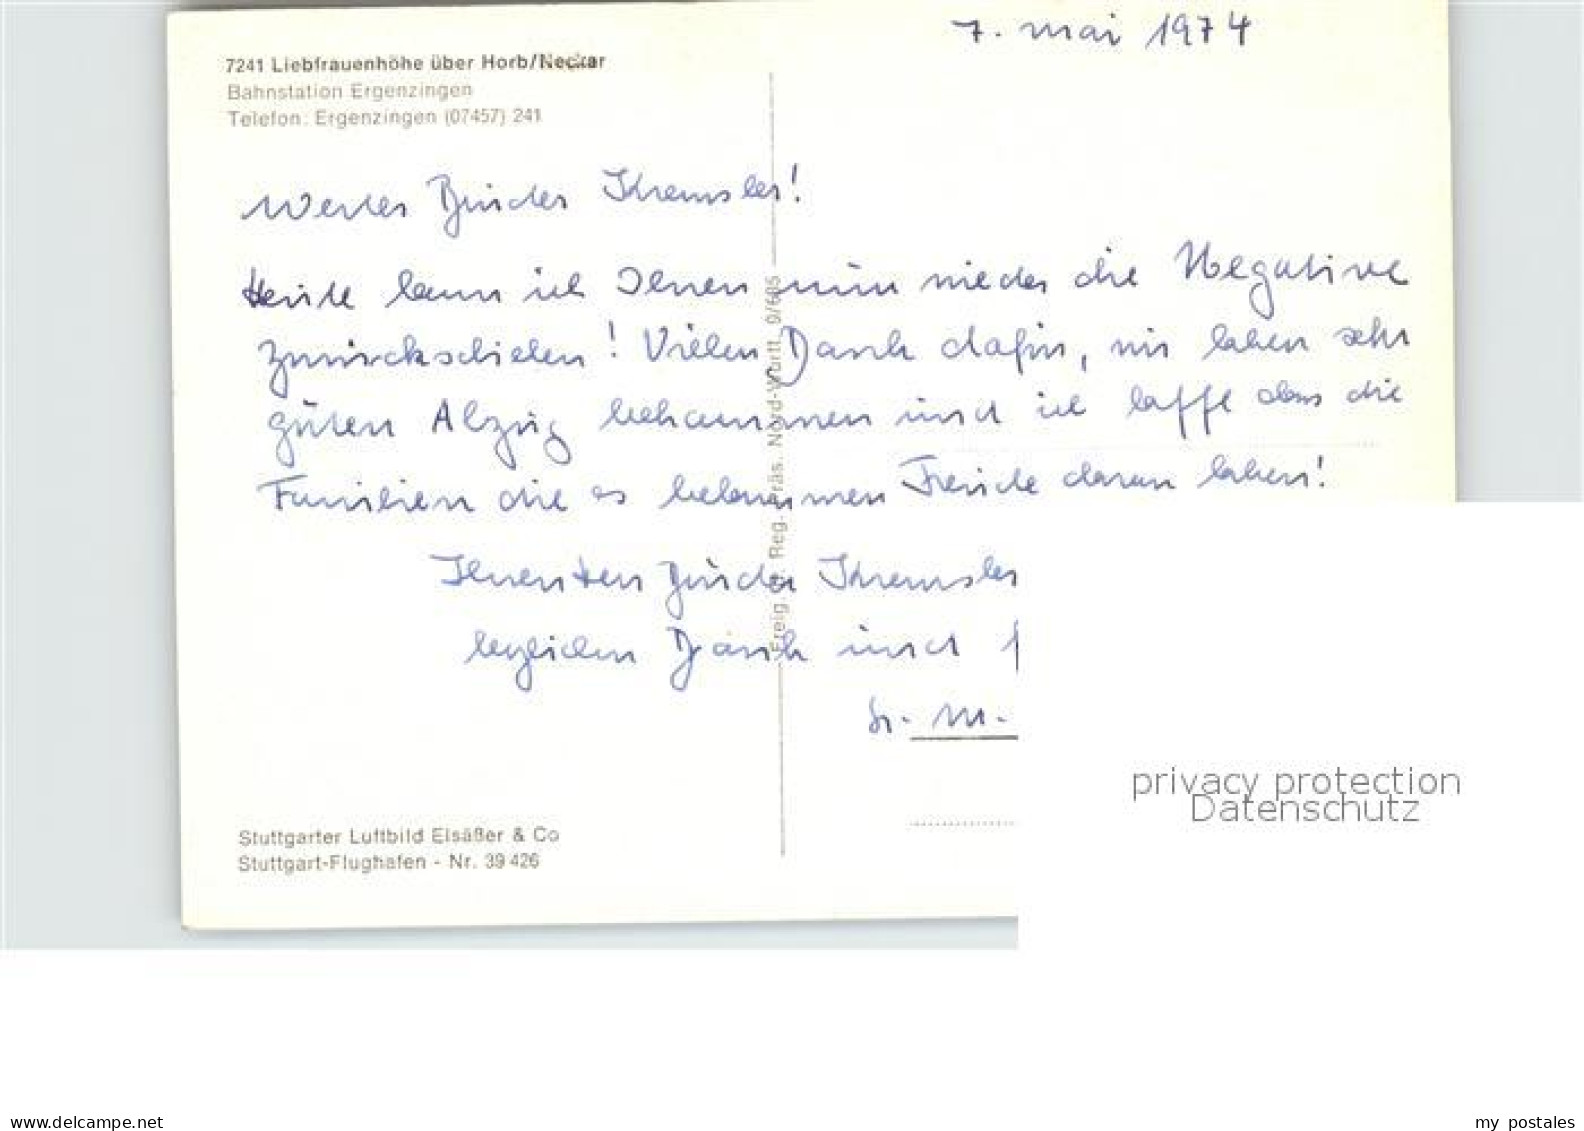 7. Mai 1974
7241 Liebfrauenhöhe über Horb/Neckar
Bahnstation Ergenzingen
Telefon: Ergenzingen (07457) 241
Werter Bruder
Heute kann ich Ihnen nun wieder die Negative
zurückschicken! Vielen Dank dafür, wir haben sehr
guten Abzug bekommen und ich hoffe dass die
Familien die es bekommen Freude daran haben!
Ihnen
herzlichen Dank und
Sr. M.
Freig. Reg. Präs. Nord-Württ. 9/685
Stuttgarter Luftbild Elsäßer & Co
Stuttgart-Flughafen - Nr. 39 426
privacy protection
Datenschutz
www.delcampe.net
my postales